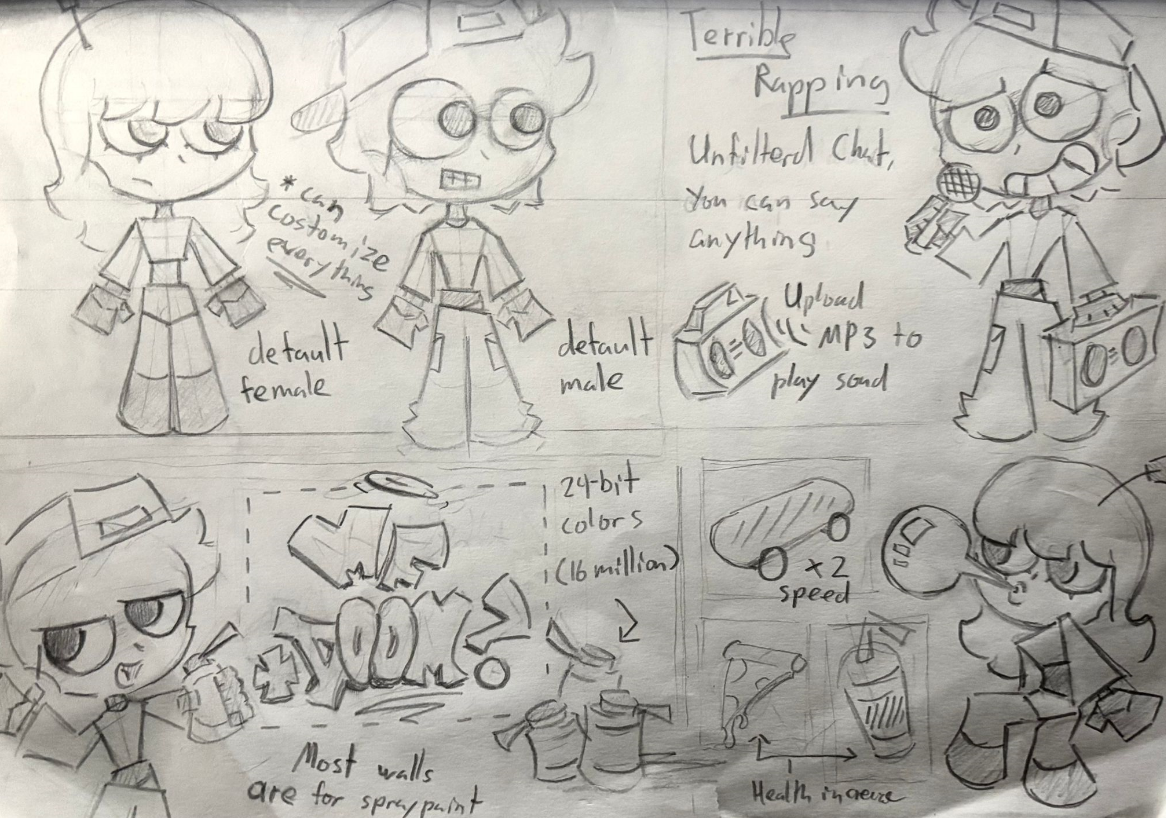 *can
costomize
everything
default
female
default
male
Terrible
Rapping
Unfilterd Chat,
You can say
anything
Upload
MP3 to
play soud
24-bit
colors
(16 million)
Most walls
are for spraypaint
x2
speed
Health increeze